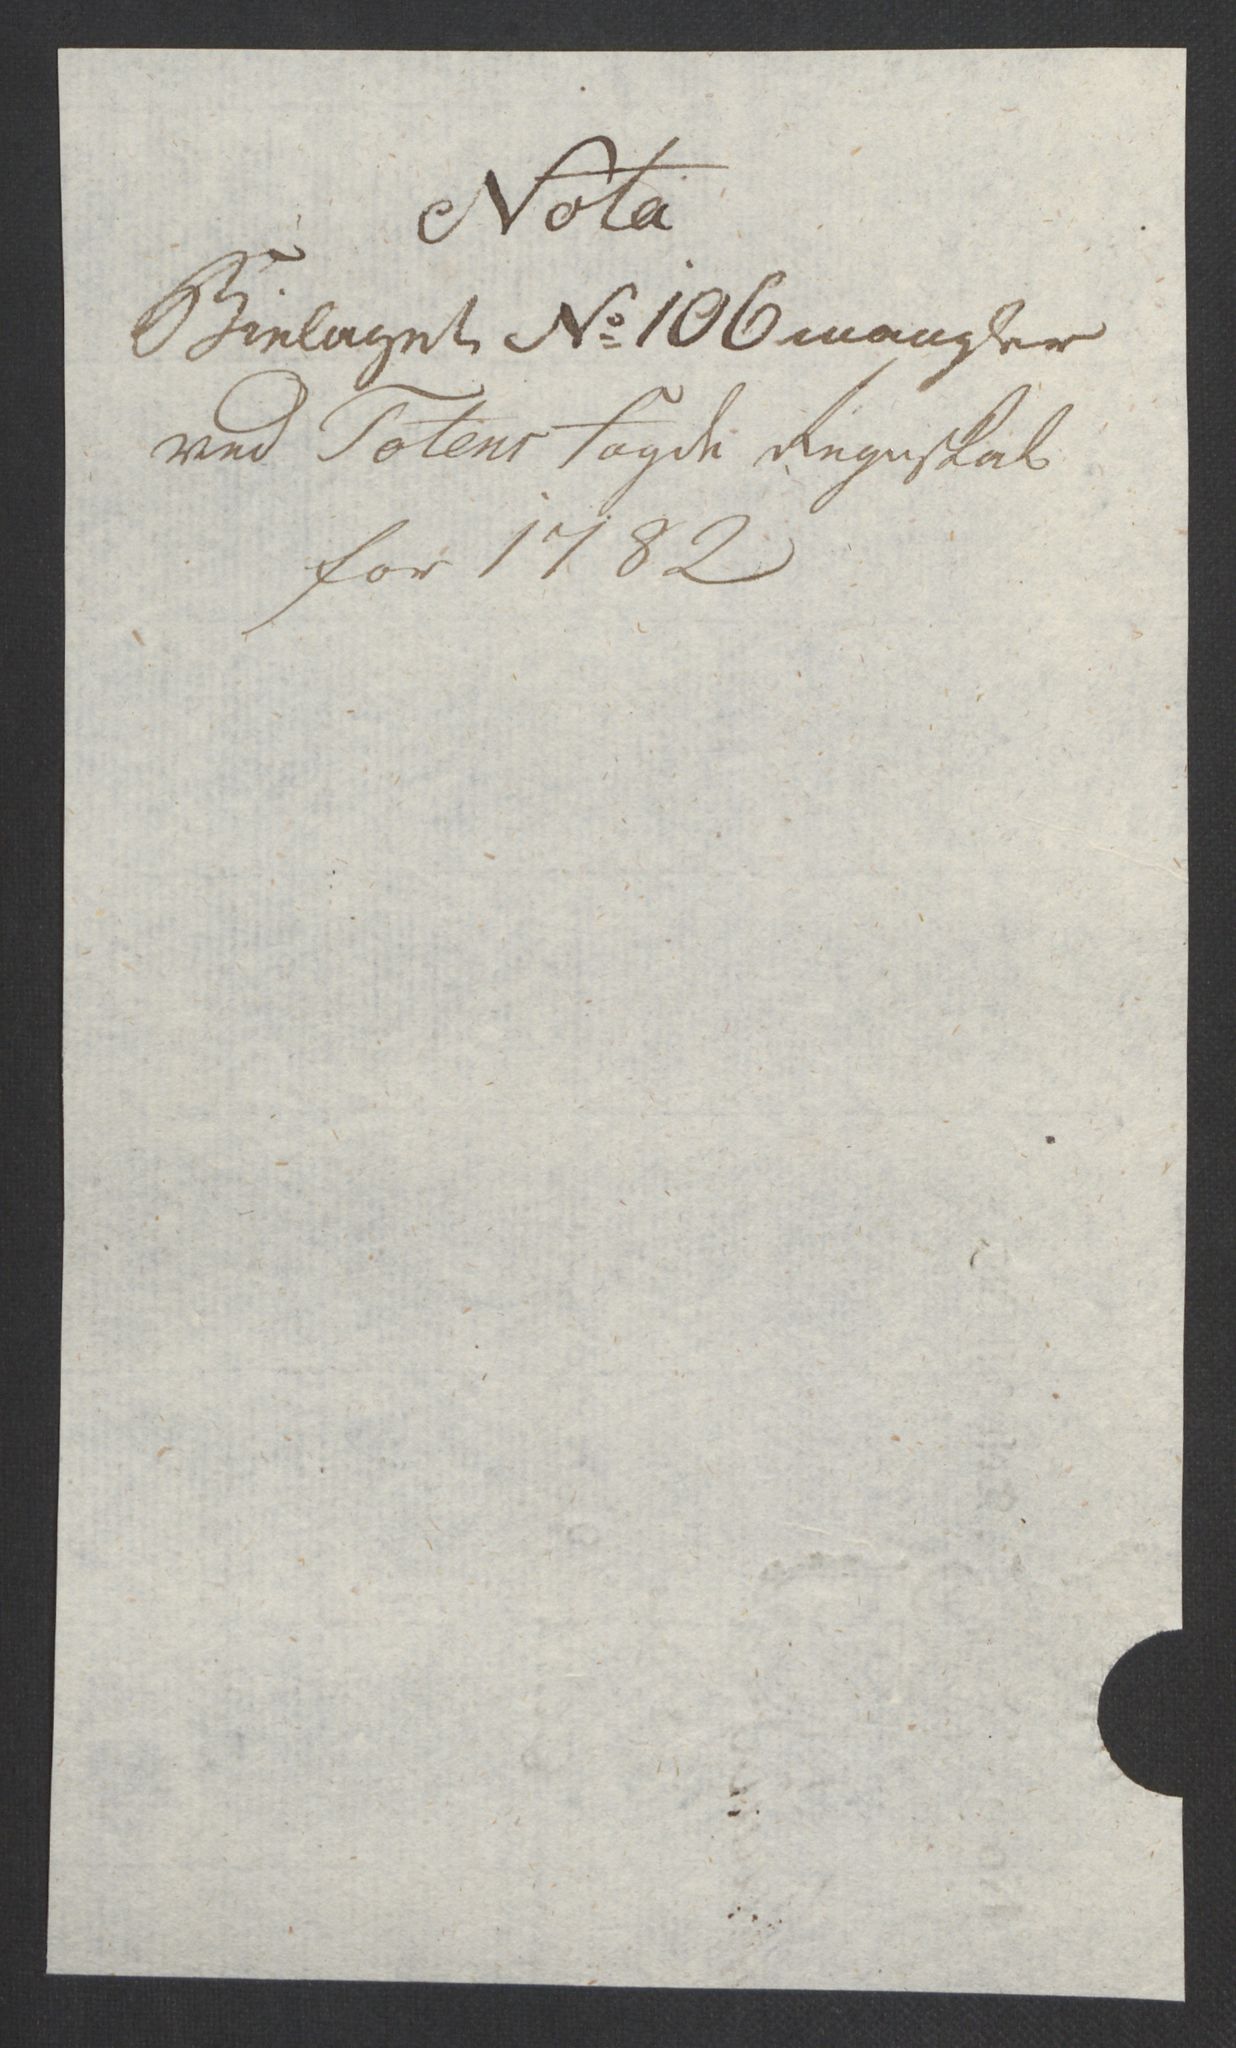 Nota
Bielaget No 106 mangler
ved Totens fogde Regnskab
for 1782